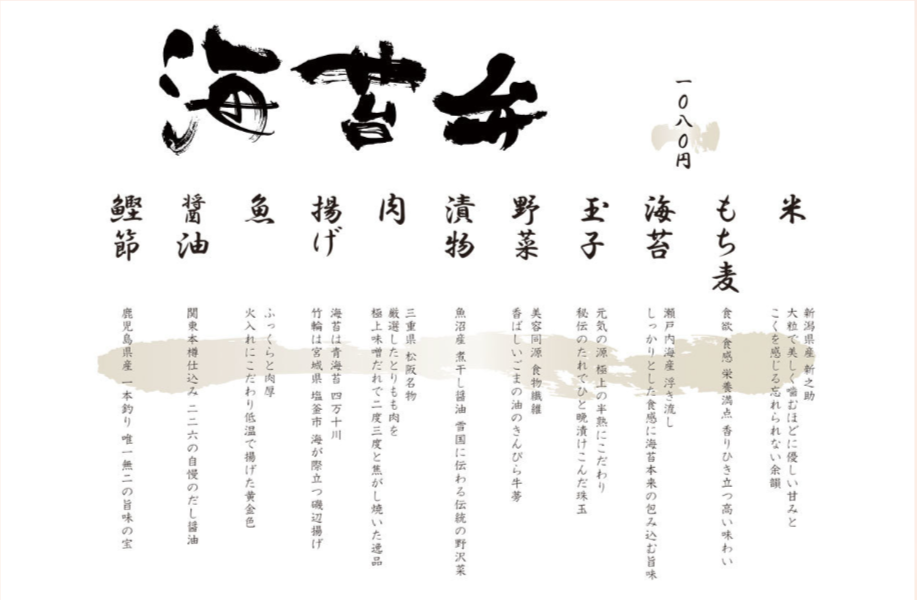 海苔弁
一〇八〇円
米
新潟県産 新之助
大粒で美しく噛むほどに優しい甘みと
こくを感じる忘れられない余韻
もち麦
食欲 食感 栄養満点 香りひき立つ高い味わい
海苔
瀬戸内海産 浮き流し
しっかりとした食感に海苔本来の包み込む旨味
玉子
元気の源 極上の半熟にこだわり
秘伝のたれでひと晩漬けこんだ珠玉
野菜
美容同源 食物繊維
香ばしいごまの油のきんぴら牛蒡
漬物
魚沼産 煮干し醤油 雪国に伝わる伝統の野沢菜
肉
三重県 松阪名物
厳選したとりもも肉を
極上味噌だれで二度三度と焦がし焼いた逸品
揚げ
海苔は青海苔 四万十川
竹輪は宮城県 塩釜市 海が際立つ磯辺揚げ
魚
ふっくらと肉厚
火入れにこだわり低温で揚げた黄金色
醤油
関東本樽仕込み 二二六の自慢のだし醤油
鰹節
鹿児島県産 一本釣り 唯一無二の旨味の宝